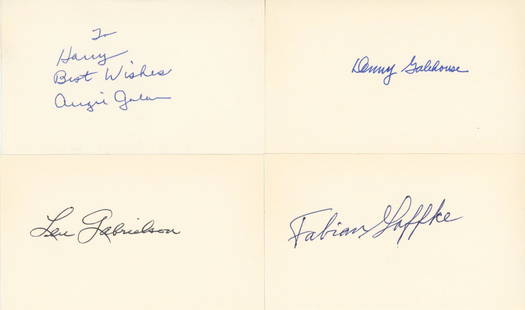 To
Harry
Best Wishes
Augie Galan
Denny Galehouse
Len Gabrielson
Fabian Gaffke